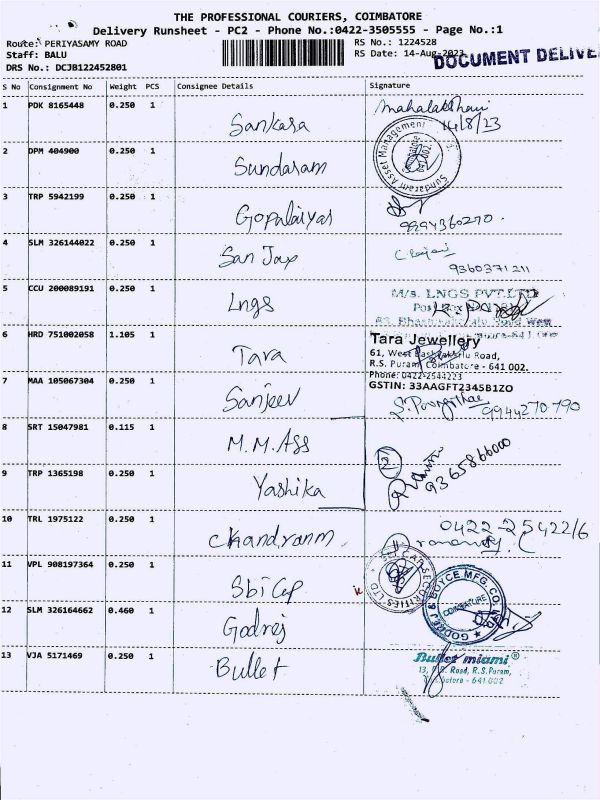 THE PROFESSIONAL COURIERS, COIMBATORE
Delivery Runsheet - PC2 - Phone No.:0422-3505555 - Page No.:1
Route: PERIYASAMY ROAD
Staff: BALU
DRS No.: DCJB122452801
RS No.: 1224528
RS Date: 14-Aug-2023
DOCUMENT DELIVE
S No Consignment No Weight PCS Consignee Details Signature
1 PDK 8165448 0.250 1 Sankara
14/8/23
2 DPM 404900 0.250 1 Sundaram
Sundaram Asset Management
3 TRP 5942199 0.250 1 Gopalaiyar
9994360270.
4 SLM 326144022 0.250 1 San Jay
9360371211
5 CCU 200089191 0.250 1 Lngs
M/s. LNGS PVT.LTD
6 HRD 751002058 1.105 1 Tara
Tara Jewellery
61, West Road,
R.S. Puram, Coimbatore - 641 002.
Phone: 0422-2544223
GSTIN: 33AAGFT2345B1ZO
7 MAA 105067304 0.250 1 Sanjeev
9944270790
8 SRT 15047981 0.115 1 M.M.Ass
2
9365866000
9 TRP 1365198 0.250 1 Yashika
10 TRL 1975122 0.250 1 Chandranm.
0422-25422/6
11 VPL 908197364 0.250 1 Sbi Cap
SBICAP SECURITIES LTD
12 SLM 326164662 0.460 1 Godrej
GODREJ & BOYCE MFG. CO.
COIMBATORE
13 VJA 5171469 0.250 1 Bullet
Bullet miami®
13, Road, R.S.Puram,
641 002